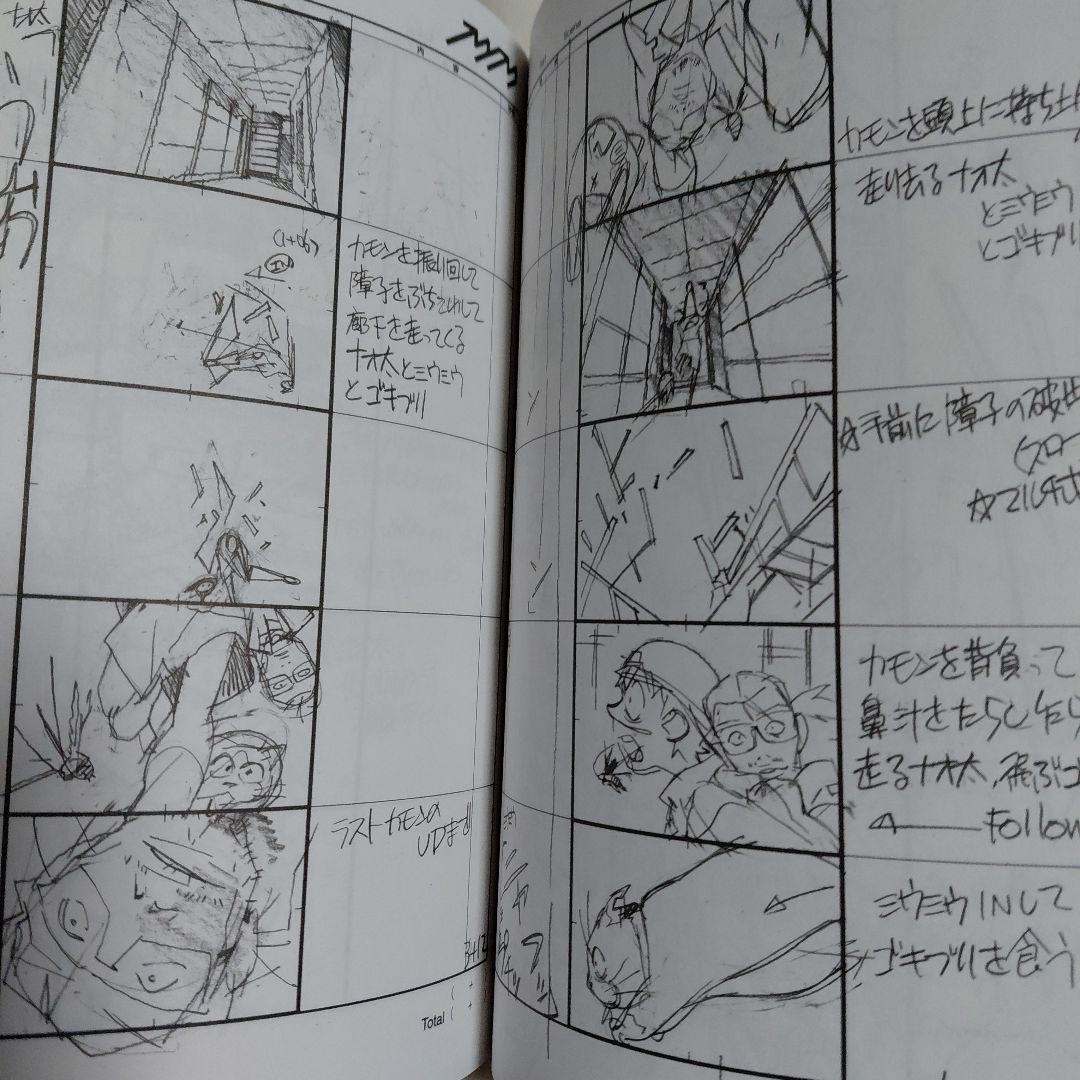 ナオ太
内容
カモンを振り回して
障子をぶちこわして
廊下を走ってくる
ナオ太とミウミウ
とゴキブリ
ラストカモンの
UPまで
3+12
Total
カモンを頭上に持ち上げ
走り去るナオ太
とミウミウ
とゴキブリ
☆手前に障子の破片
(スロー
☆マルチ
カモンを背負って
鼻汁をたらしたら
走るナオ太、飛ぶゴ
Follow
ミウミウINして
ゴキブリを食う